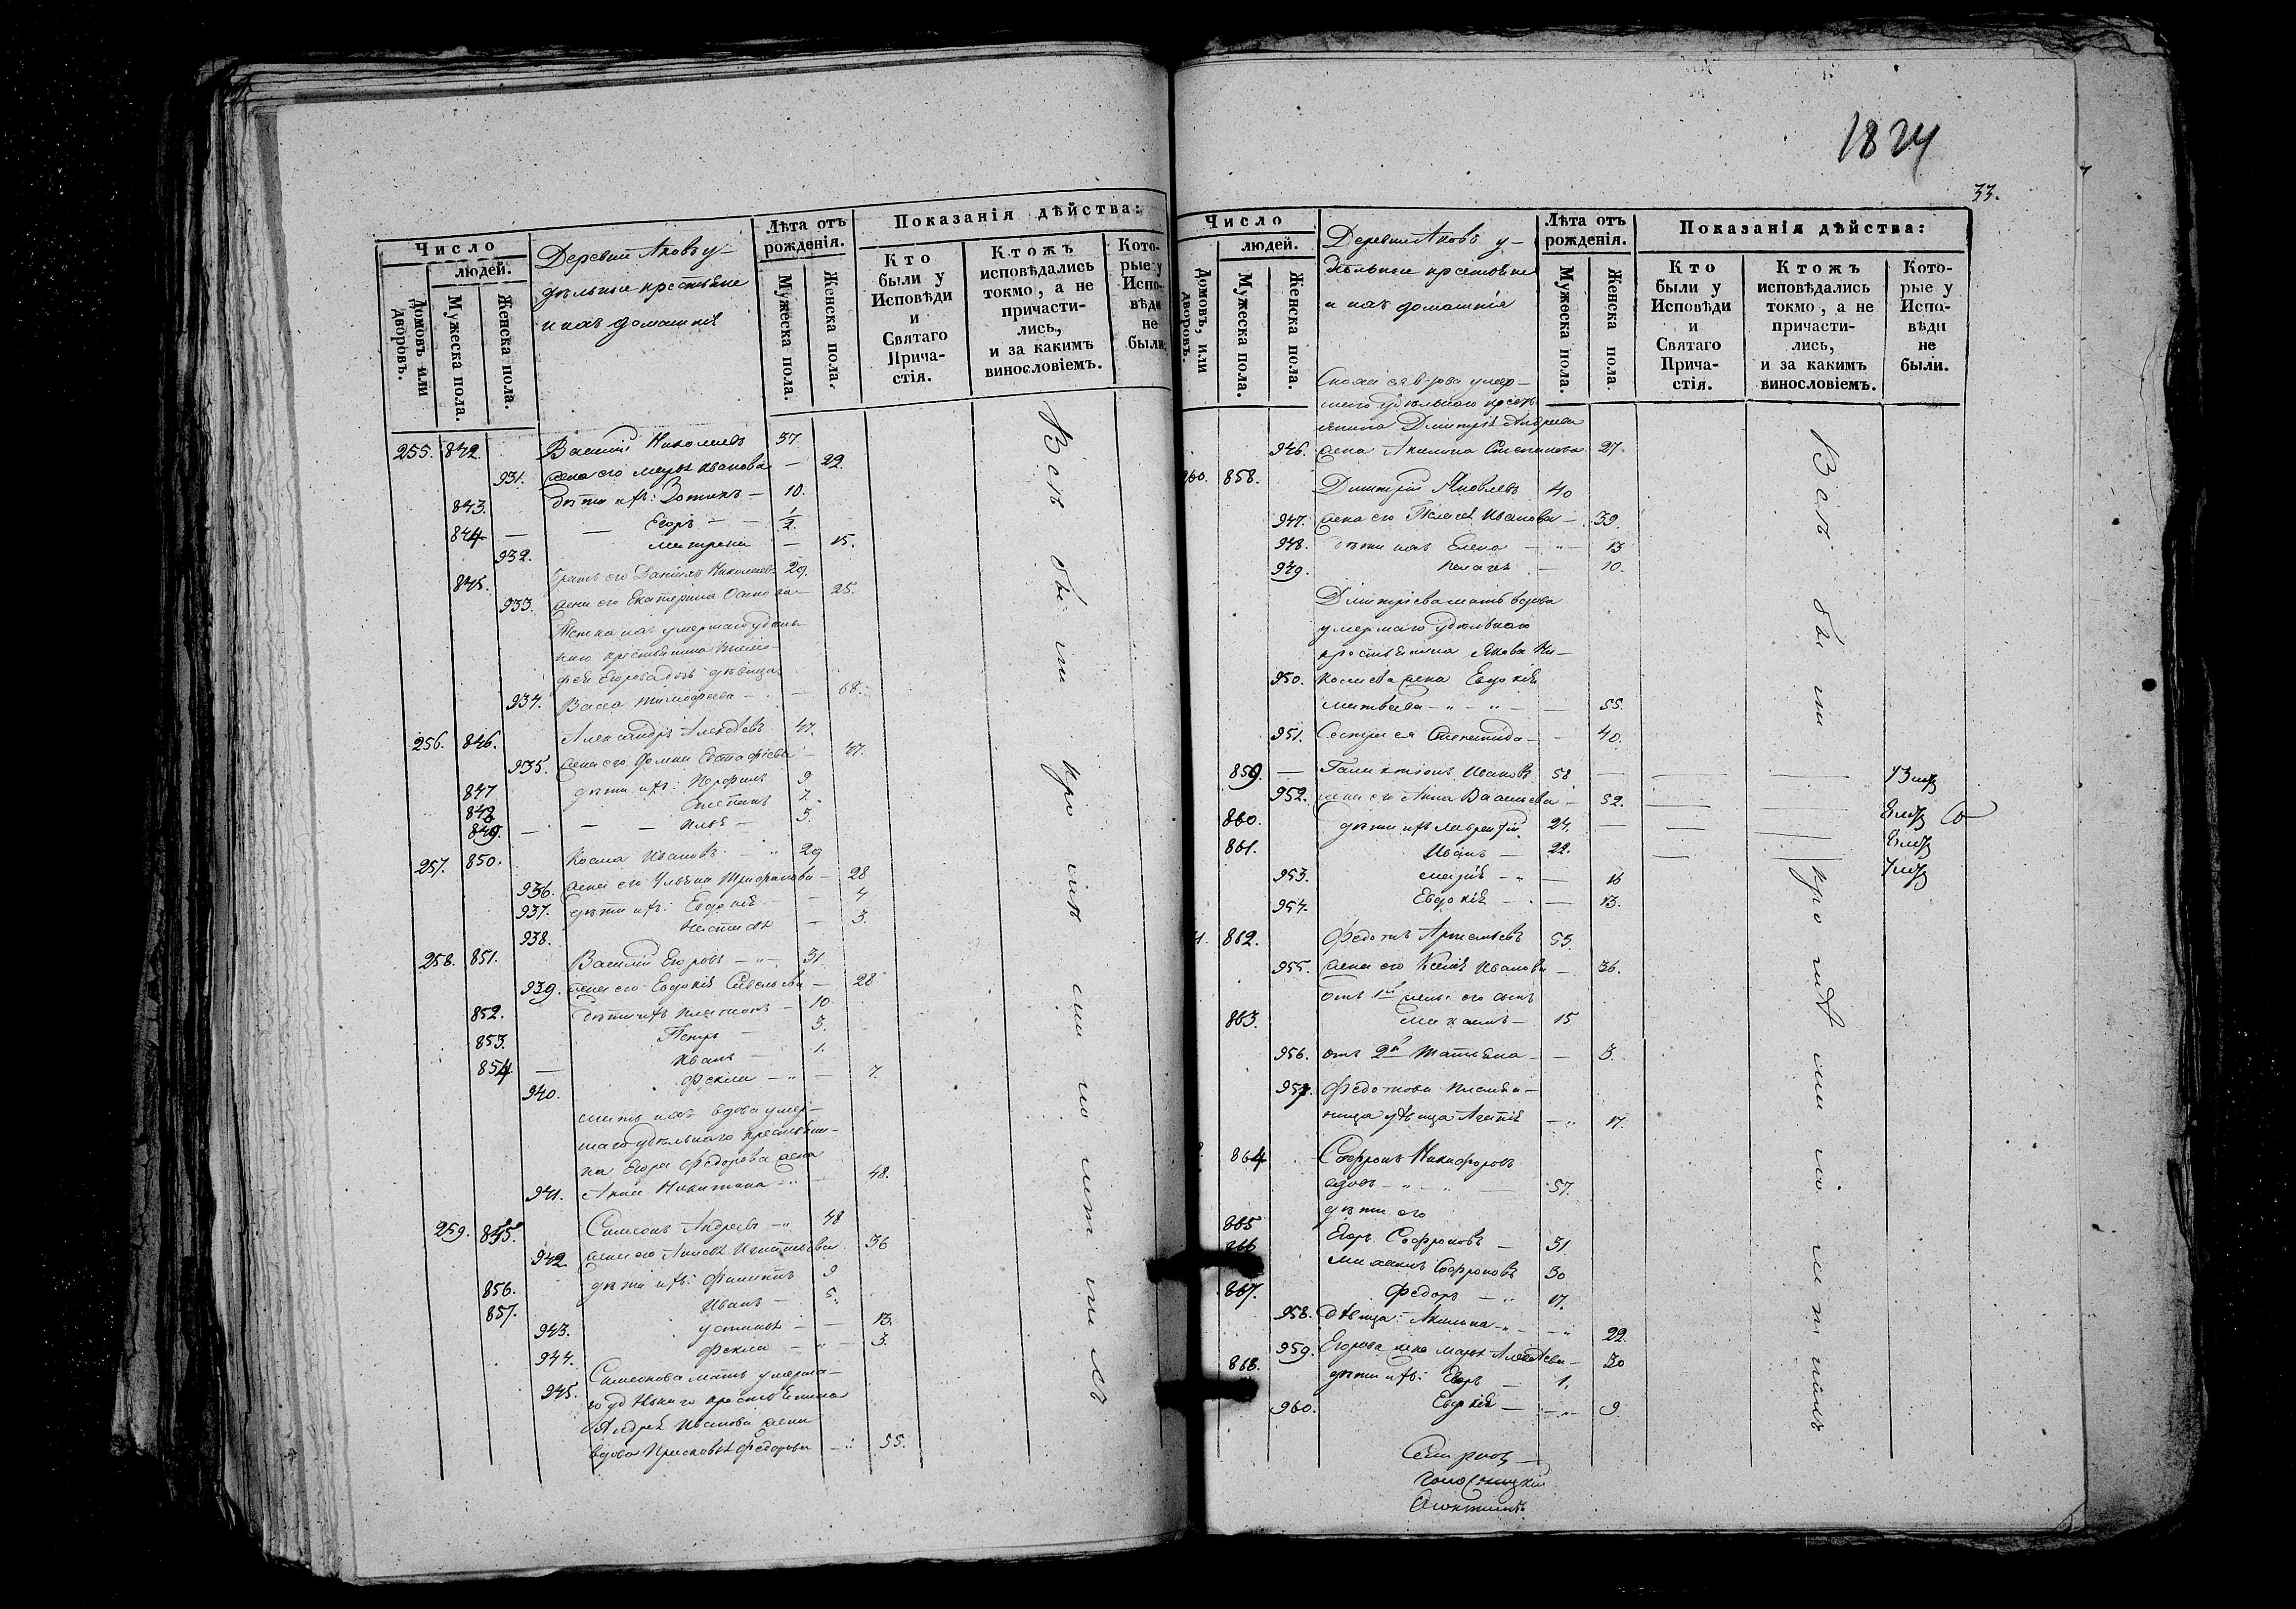 Число
людей.
Домовъ или дворовъ.
Мужеска пола.
Женска пола.
Деревни Яковъ у-
дѣльные крестьяне
и ихъ домашнія
Лѣта отъ рожденія.
Мужеска пола.
Женска пола.
Показанія дѣйства:
Кто были у Исповѣди и Святаго Прича-стія.
Ктожъ исповѣдались токмо, а не причасти-лись, и за какимъ винословіемъ.
Кото-рые у Испо-вѣди не были.
255. 842. Василій Николаевъ 37
931. жена его Марья Иванова — 22.
843. дѣти ихъ: Зотикъ — 10.
844 — — Егоръ — — 1/2.
932. Матрена — 15.
845. братъ его Даніилъ Николаевъ 29.
933. жена его Екатерина Осипова — 25.
Тетка ихъ умершаго удѣль-
наго крестьянина Тимо-
фея Егорова дочь дѣвица
934. Васса Тимофеева — — 68.
256. 846. Александръ Алексѣевъ 47.
935. жена его Домна Евстафіева — 47.
847 дѣти ихъ: Порфиръ 9
848 Степанъ 7.
849. — — — Илья — 3.
257. 850. Косма Ивановъ — " 29
936. жена его Ульяна Трифонова — 28
937. дѣти ихъ: Евдокія — — 4
938. Настасья — 3.
258. 851. Василій Егоровъ — " — 31.
939. жена его Евдокія Савельева — 28
852. дѣти ихъ Платонъ — 10
853. Петръ — 3.
854 — Иванъ — 1.
940. Фекла — " — 7.
мать ихъ вдова умер-
шаго удѣльнаго крестьяни-
на Егора Федорова жена
941. Анна Никитина — " — 48.
259. 855. Симеонъ Андреевъ — " 48
942. жена его Анисья Игнатьева 36
856. дѣти ихъ: Филиппъ 9
857. Иванъ — 5.
943. Устинья — — 13.
944. Фекла — " — 3.
945. Симеонова мать умерша-
го удѣльнаго крестьянина
Андрея Иванова жена
вдова Прасковья Федорова — 55.
Всѣ были кромѣ мл
1824
33.
Число
людей.
Домовъ, или дворовъ.
Мужеска пола.
Женска пола.
Деревни Яковъ у-
дѣльные крестьяне
и ихъ домашнія
Лѣта отъ рожденія.
Мужеска пола.
Женска пола.
Показанія дѣйства:
Кто были у Исповѣди и Святаго Прича-стія.
Ктожъ исповѣдались токмо, а не причасти-лись, и за какимъ винословіемъ.
Кото-рые у Испо-вѣди не были.
вдова умер-
шаго удѣльнаго кресть-
янина Димитрія Андреева
946. жена Акилина Степанова 27
260. 858. Димитрій Яковлевъ 40
947. жена его Пелагея Иванова — 39.
948. дѣти ихъ Елена — " — 13
949. Пелагея — 10.
Димитріева мать вдова
умершаго удѣльнаго
крестьянина Якова Ни-
950. колаева жена Евдокія
Матвѣева — " — " — — 55.
951. Сестра ея Степанида — — 40.
859. — Галактіонъ Ивановъ 58 — — —
952. жена его Анна Васильева — 52. — —
860. дѣти ихъ Лаврентій 24. — — —
861. Иванъ — 22. — —
953. Марія — " — 16
954. Евдокія — . — 13.
862. Федотъ Артемьевъ 53.
955. жена его Ксенія Иванова — 36.
отъ 1й жены его сынъ
863. Михаилъ — 15
956. отъ 2й Татьяна — — 3.
957. Федотова племян-
ница дѣвица Агафія — " 17.
864 Софронъ Никифоровъ
вдовъ — " — " — 57.
дѣти его
865 Егоръ Софроновъ — 31.
866 Михаилъ Софроновъ 30
867. Федоръ — " 17.
958. дѣвица: Акилина — " — " 22.
959. Егорова жена Марья Алексѣева — 30
868. дѣти ихъ: Егоръ — 1.
960. Евдокія — — " — 9.
Всѣ были кромѣ